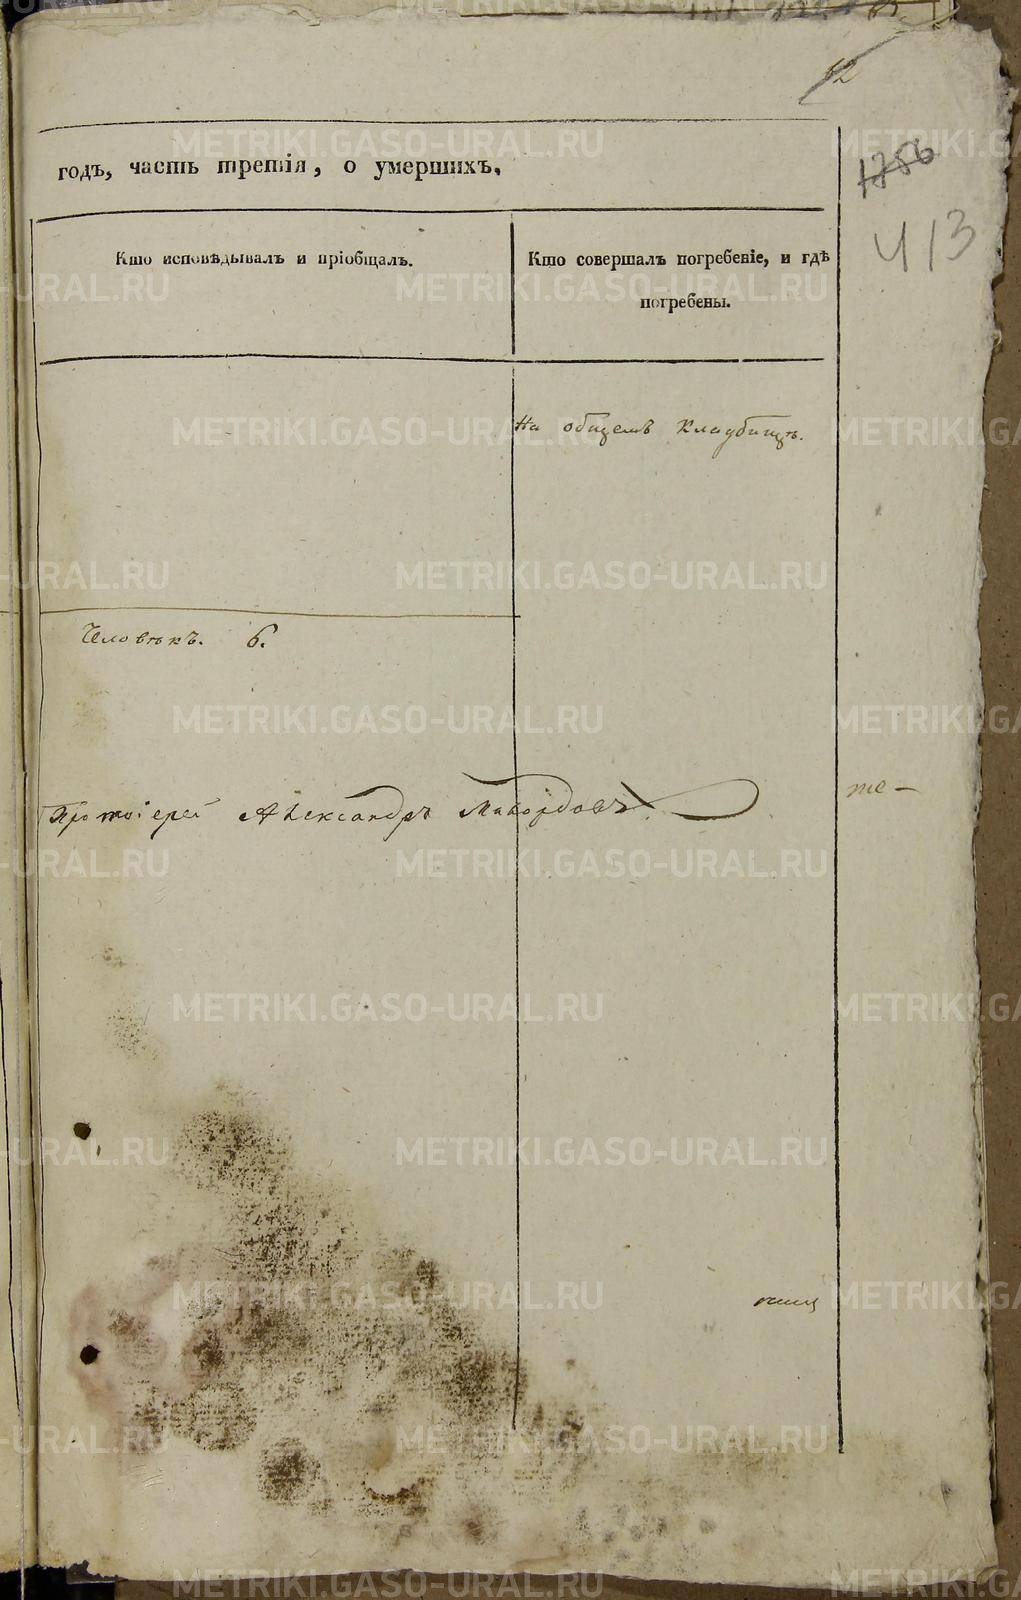 12
годъ, часть третія, о умершихъ.
1756
413
Кто исповѣдывалъ и пріобщалъ.
Кто совершалъ погребеніе, и гдѣ
погребены.
На общемъ кладбищѣ.
Человѣкъ. 6.
Протоіерей Александръ
те —
METRIKI.GASO-URAL.RU